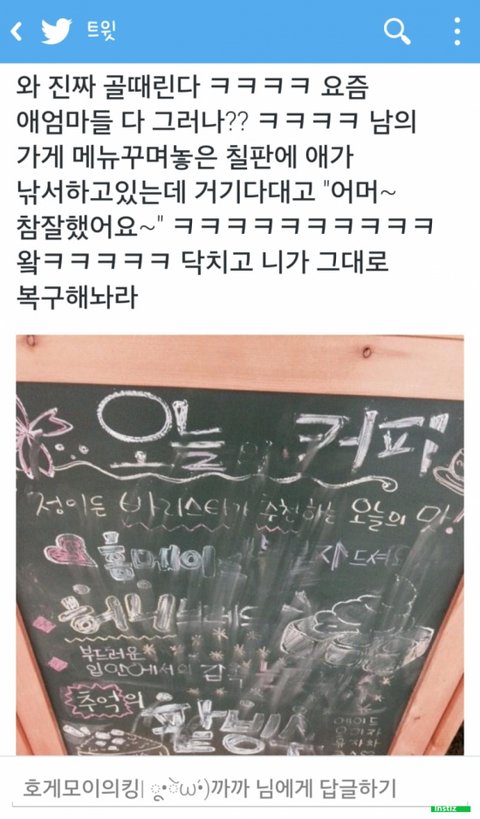 트윗
와 진짜 골때린다 ㅋㅋㅋㅋ 요즘
애엄마들 다 그러나?? ㅋㅋㅋㅋ 남의
가게 메뉴꾸며놓은 칠판에 애가
낚서하고있는데 거기다대고 "어머~
참잘했어요~" ㅋㅋㅋㅋㅋㅋㅋㅋㅋㅋㅋ
왘ㅋㅋㅋㅋㅋ 닥치고 니가 그대로
복구해놔라
오늘의 커피
정이든 바리스타가 추천하는 오늘의 미!
홈메이
허니브레드
부드러운
입안에서의 감촉
추억의
팥빙수
에이드
유자차
호게모이의킹| ूੇ•̀ω•́)까까 님에게 답글하기
instiz